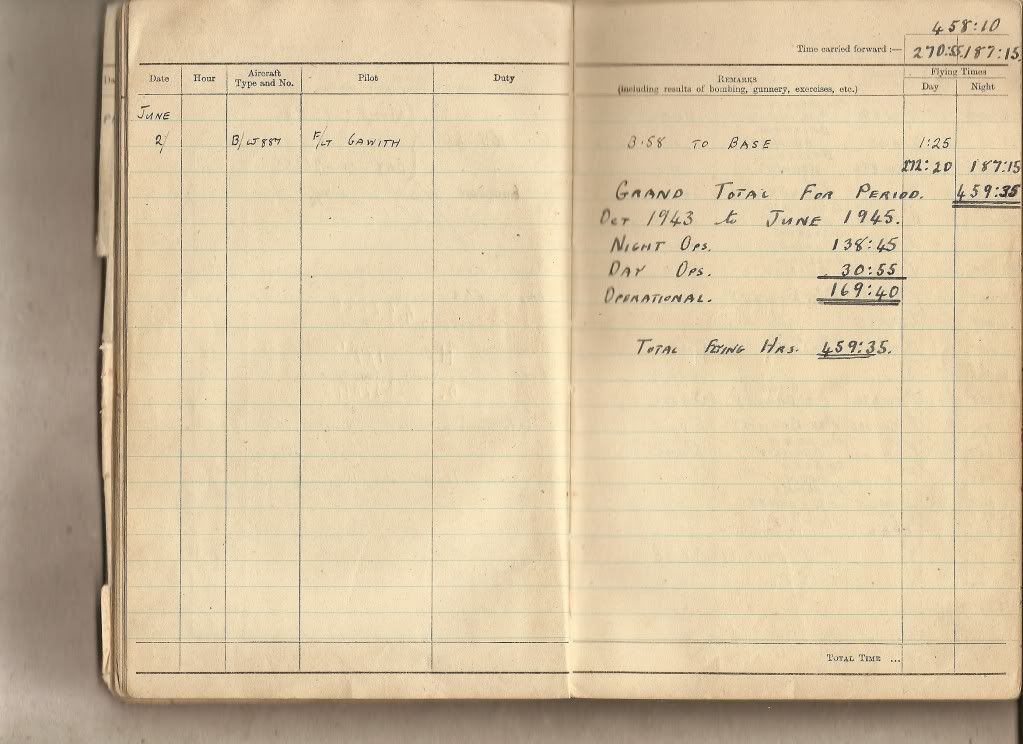 458:10
Time carried forward :— 270:55 187:15
Date Hour Aircraft Type and No. Pilot Duty
REMARKS (including results of bombing, gunnery, exercises, etc.) Flying Times Day Night
JUNE
2/ F/LT GAWITH B.58 TO BASE 1:25
272:20 187:15
GRAND TOTAL FOR PERIOD. 459:35
OCT 1943 to JUNE 1945.
NIGHT OPS. 138:45
DAY OPS. 30:55
OPERATIONAL. 169:40
TOTAL FLYING HRS. 459:35.
TOTAL TIME ...